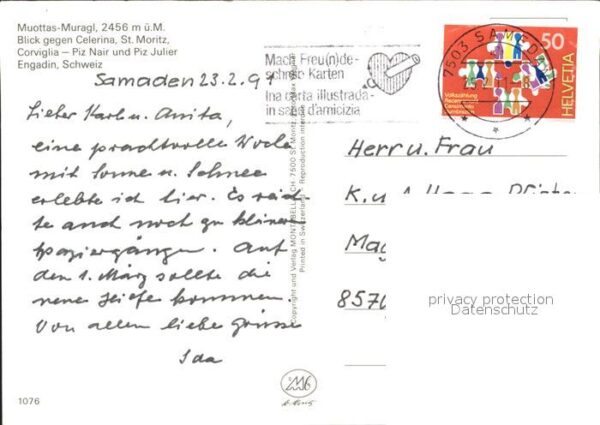 Muottas-Muragl, 2456 m ü.M.
Blick gegen Celerina, St. Moritz,
Corviglia – Piz Nair und Piz Julier
Engadin, Schweiz
Samaden 23.2.91
Lieber Karl u. Anita,
eine prachtvolle Woche
mit Sonne u. Schnee
erlebte ich hier. Es reich
te auch noch zu kleinen
Spaziergängen. Auf
den 1. März sollte die
neue kommen.
Von allen liebe Grüsse
Ida
1076
Copyright und Verlag CH 7500 St. Moritz
Printed in Switzerland - Reproduction interdite
Mach Freu(n)de-
schreib Karten
Ina carta illustrada-
in segn d'amicizia
7503 SAMEDAN
50
HELVETIA
Volkszählung
Herr u. Frau
K. u. A.
Mag
8570
privacy protection
Datenschutz